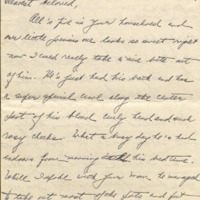 Dearest beloved,
All's fit in your household and
our little genius looks so sweet right
now I could really take a nice bite out
of him. He's just had his bath and has
a super special curl along the center
part of his blond curly head and such
rosy cheeks. What a busy day he's had
from morning till his bed time.
While I with your Mom he managed
to take out most of the and put